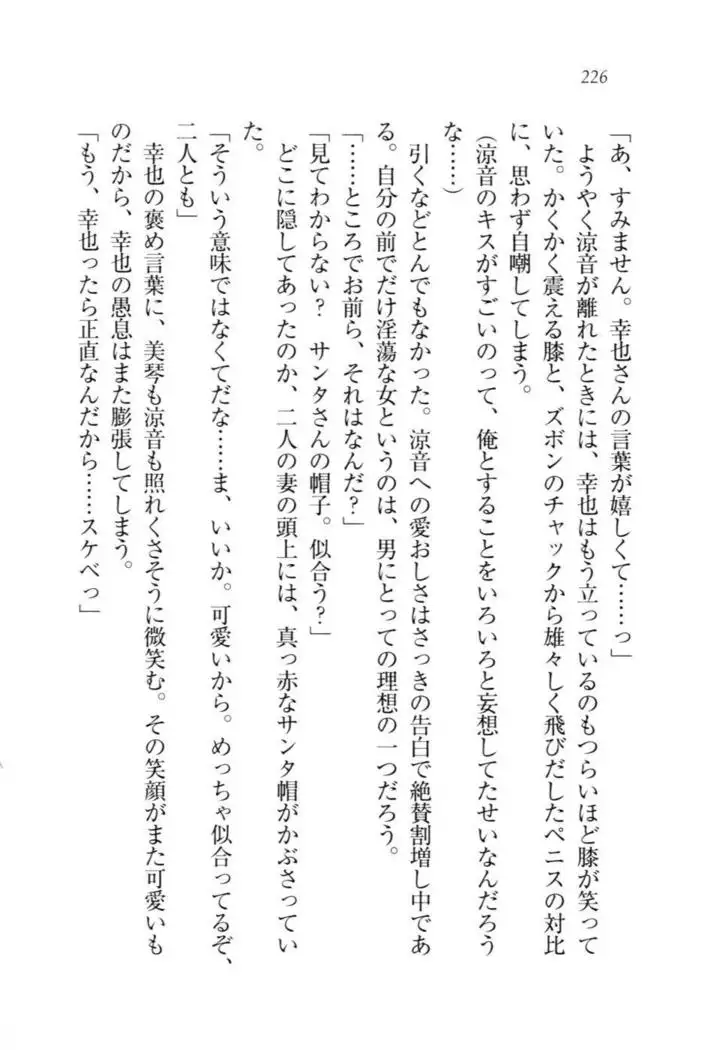 226
「あ、すみません。幸也さんの言葉が嬉しくて……っ」
ようやく涼音が離れたときには、幸也はもう立っているのもつらいほど膝が笑って
いた。かくかく震える膝と、ズボンのチャックから雄々しく飛びだしたペニスの対比
に、思わず自嘲してしまう。
(涼音のキスがすごいのって、俺とすることをいろいろと妄想してたせいなんだろう
な……)
引くなどとんでもなかった。涼音への愛おしさはさっきの告白で絶賛割増し中であ
る。自分の前でだけ淫蕩な女というのは、男にとっての理想の一つだろう。
「……ところでお前ら、それはなんだ?」
「見てわからない? サンタさんの帽子。似合う?」
どこに隠してあったのか、二人の妻の頭上には、真っ赤なサンタ帽がかぶさってい
た。
「そういう意味ではなくてだな……ま、いいか。可愛いから。めっちゃ似合ってるぞ、
二人とも」
幸也の褒め言葉に、美琴も涼音も照れくさそうに微笑む。その笑顔がまた可愛いも
のだから、幸也の愚息はまた膨張してしまう。
「もう、幸也ったら正直なんだから……スケベっ」